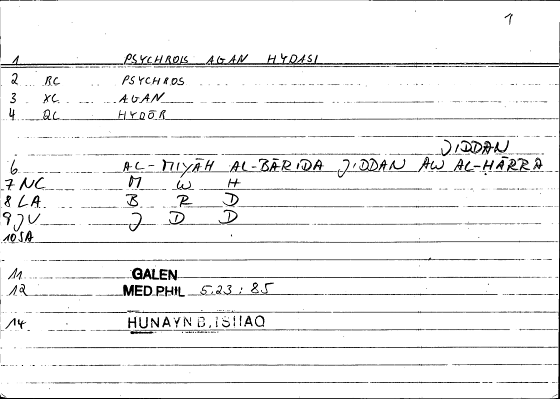 1
1 PSYCHROIS AGAN HYDASI
2 RC PSYCHROS
3 XC AGAN
4 QC HYDŌR
JIDDAN
6 AL-MIYĀH AL-BĀRIDA JIDDAN AW AL-HĀRRA
7 NC M W H
8 LA B R D
9 JV J D D
10 SA
11 GALEN
12 MED.PHIL 5.23:85
14 HUNAYN B. ISHAQ